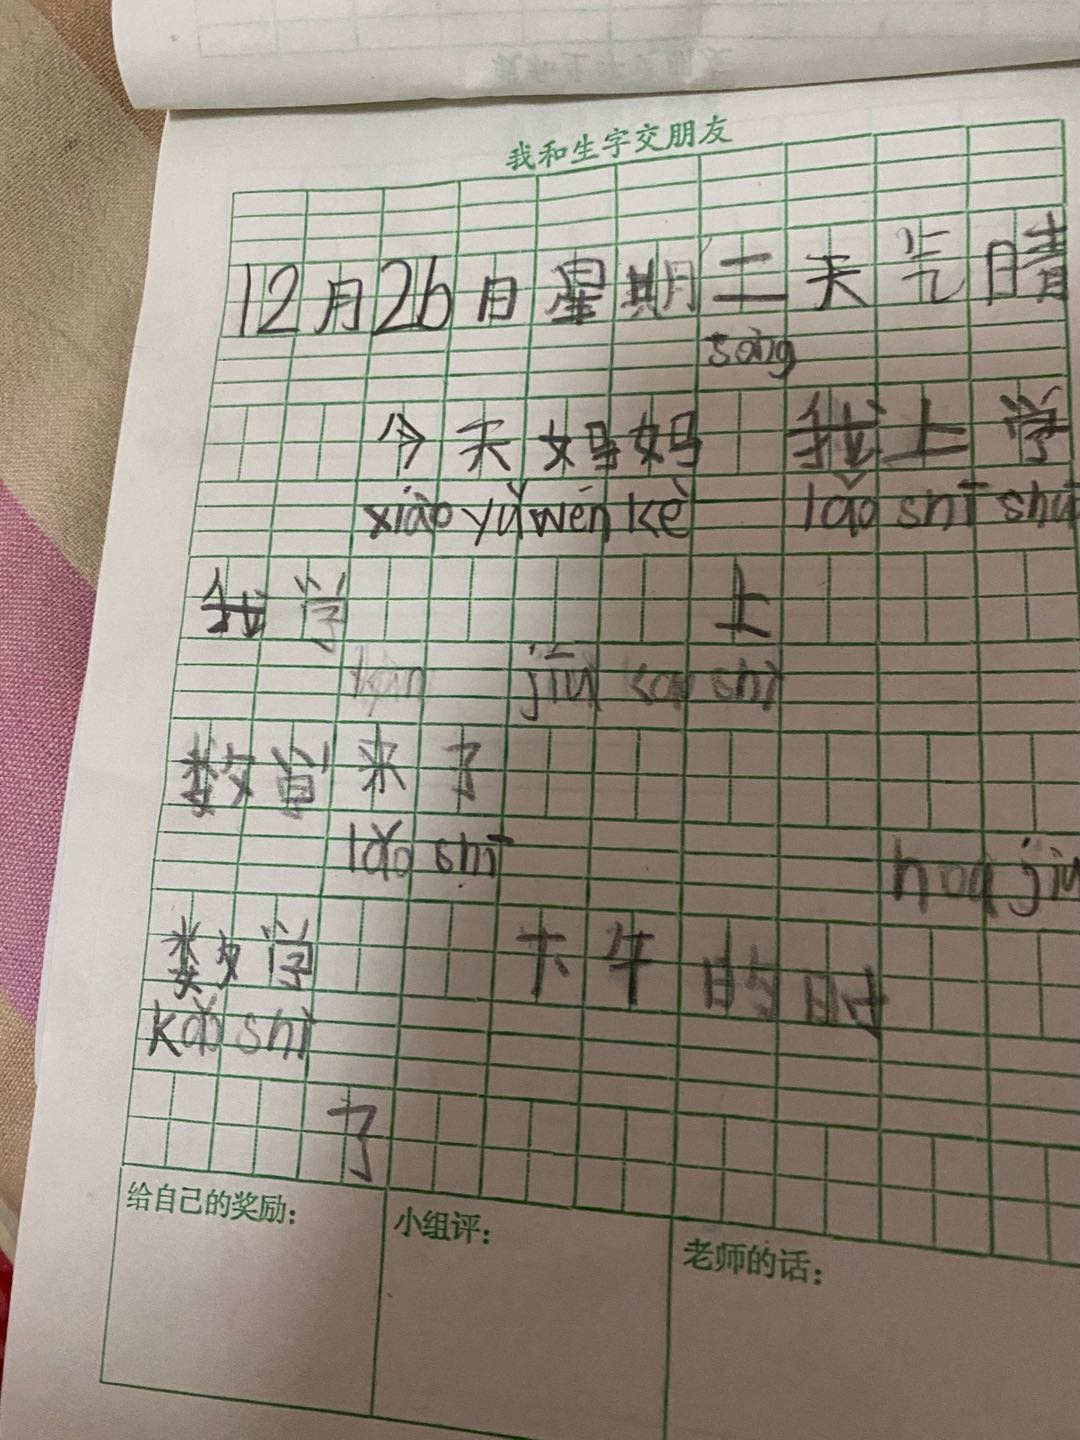 我和生字交朋友
12月26日星期二天气晴
sòng
今天妈妈 我上学
xiào yǔ wén kè lǎo shī shuō
我学 上
jiù kǎo shì
数学来了
lǎo shī
数学 下午的时
kǎo shì
了
给自己的奖励:
小组评:
老师的话: